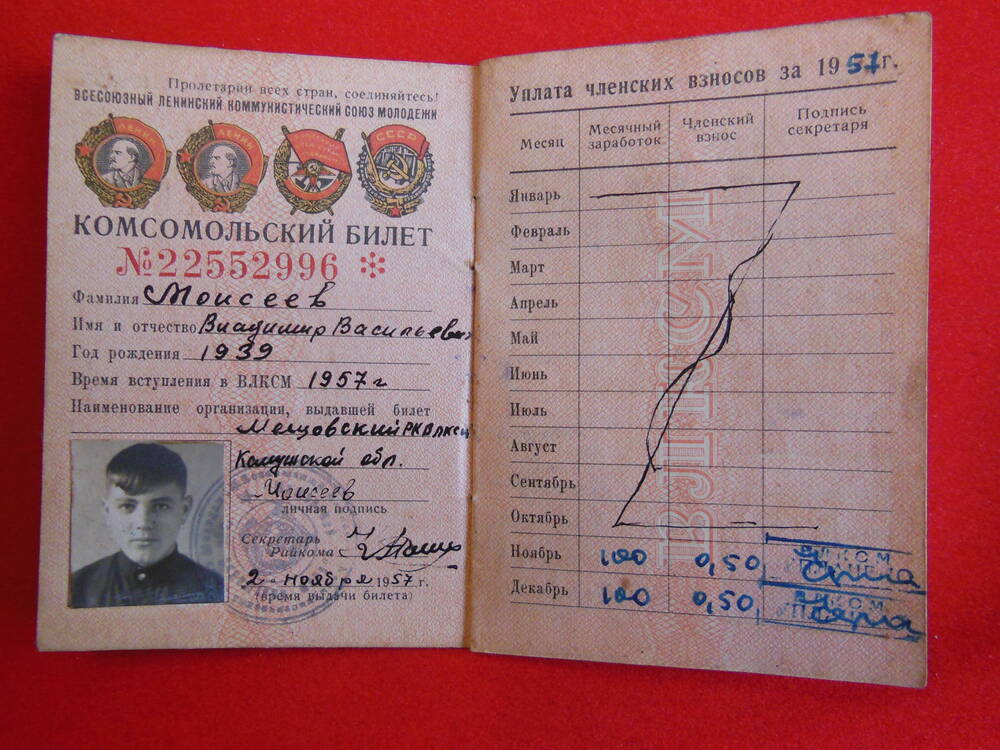 Пролетарии всех стран, соединяйтесь!
ВСЕСОЮЗНЫЙ ЛЕНИНСКИЙ КОММУНИСТИЧЕСКИЙ СОЮЗ МОЛОДЕЖИ
ЛЕНИН ЛЕНИН СССР
КОМСОМОЛЬСКИЙ БИЛЕТ
№22552996 *
Фамилия Моисеев
Имя и отчество Владимир Васильевич
Год рождения 1939
Время вступления в ВЛКСМ 1957 г
Наименование организации, выдавшей билет
Мещовский РК ВЛКСМ
Калужской обл.
Моисеев
личная подпись
Секретарь
Райкома
2 ноября 1957 г.
(время выдачи билета)
Уплата членских взносов за 1957 г.
Месяц Месячный заработок Членский взнос Подпись секретаря
ВЛКСМ
Январь
Февраль
Март
Апрель
Май
Июнь
Июль
Август
Сентябрь
Октябрь
Ноябрь 100 0,50 ВЛКСМ
Декабрь 100 0,50 ВЛКСМ